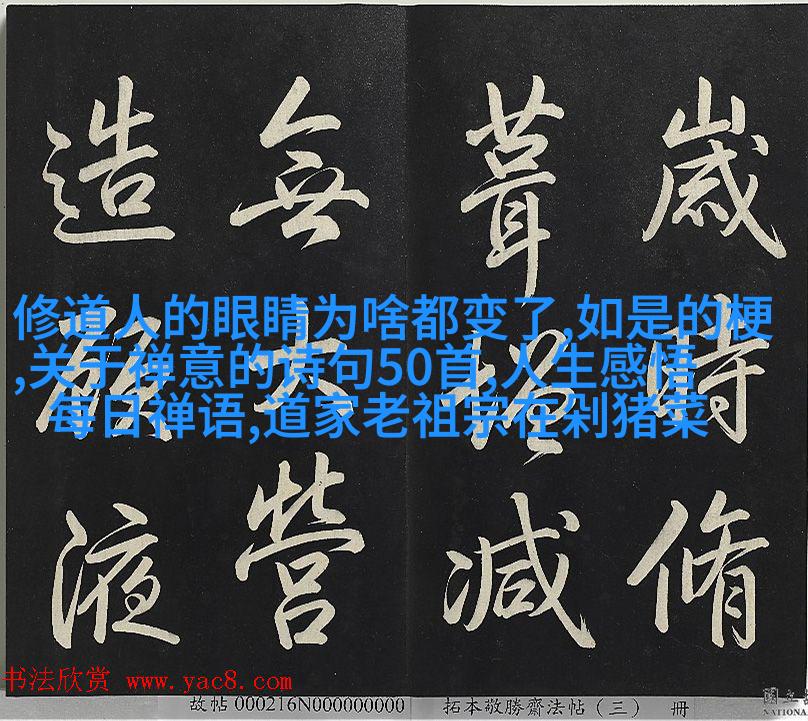 歲時脩
葺增減
無大營
造液
修道人的眼睛为啥都变了,如是的梗
,关于禅意的诗句50首,人生感悟
每日禅语,道家老祖宗在剁猪菜
书法欣赏 www.yac8.com
故帖 000216N000000000 拓本敬勝齋法帖（三） 冊
國立
NATIONA